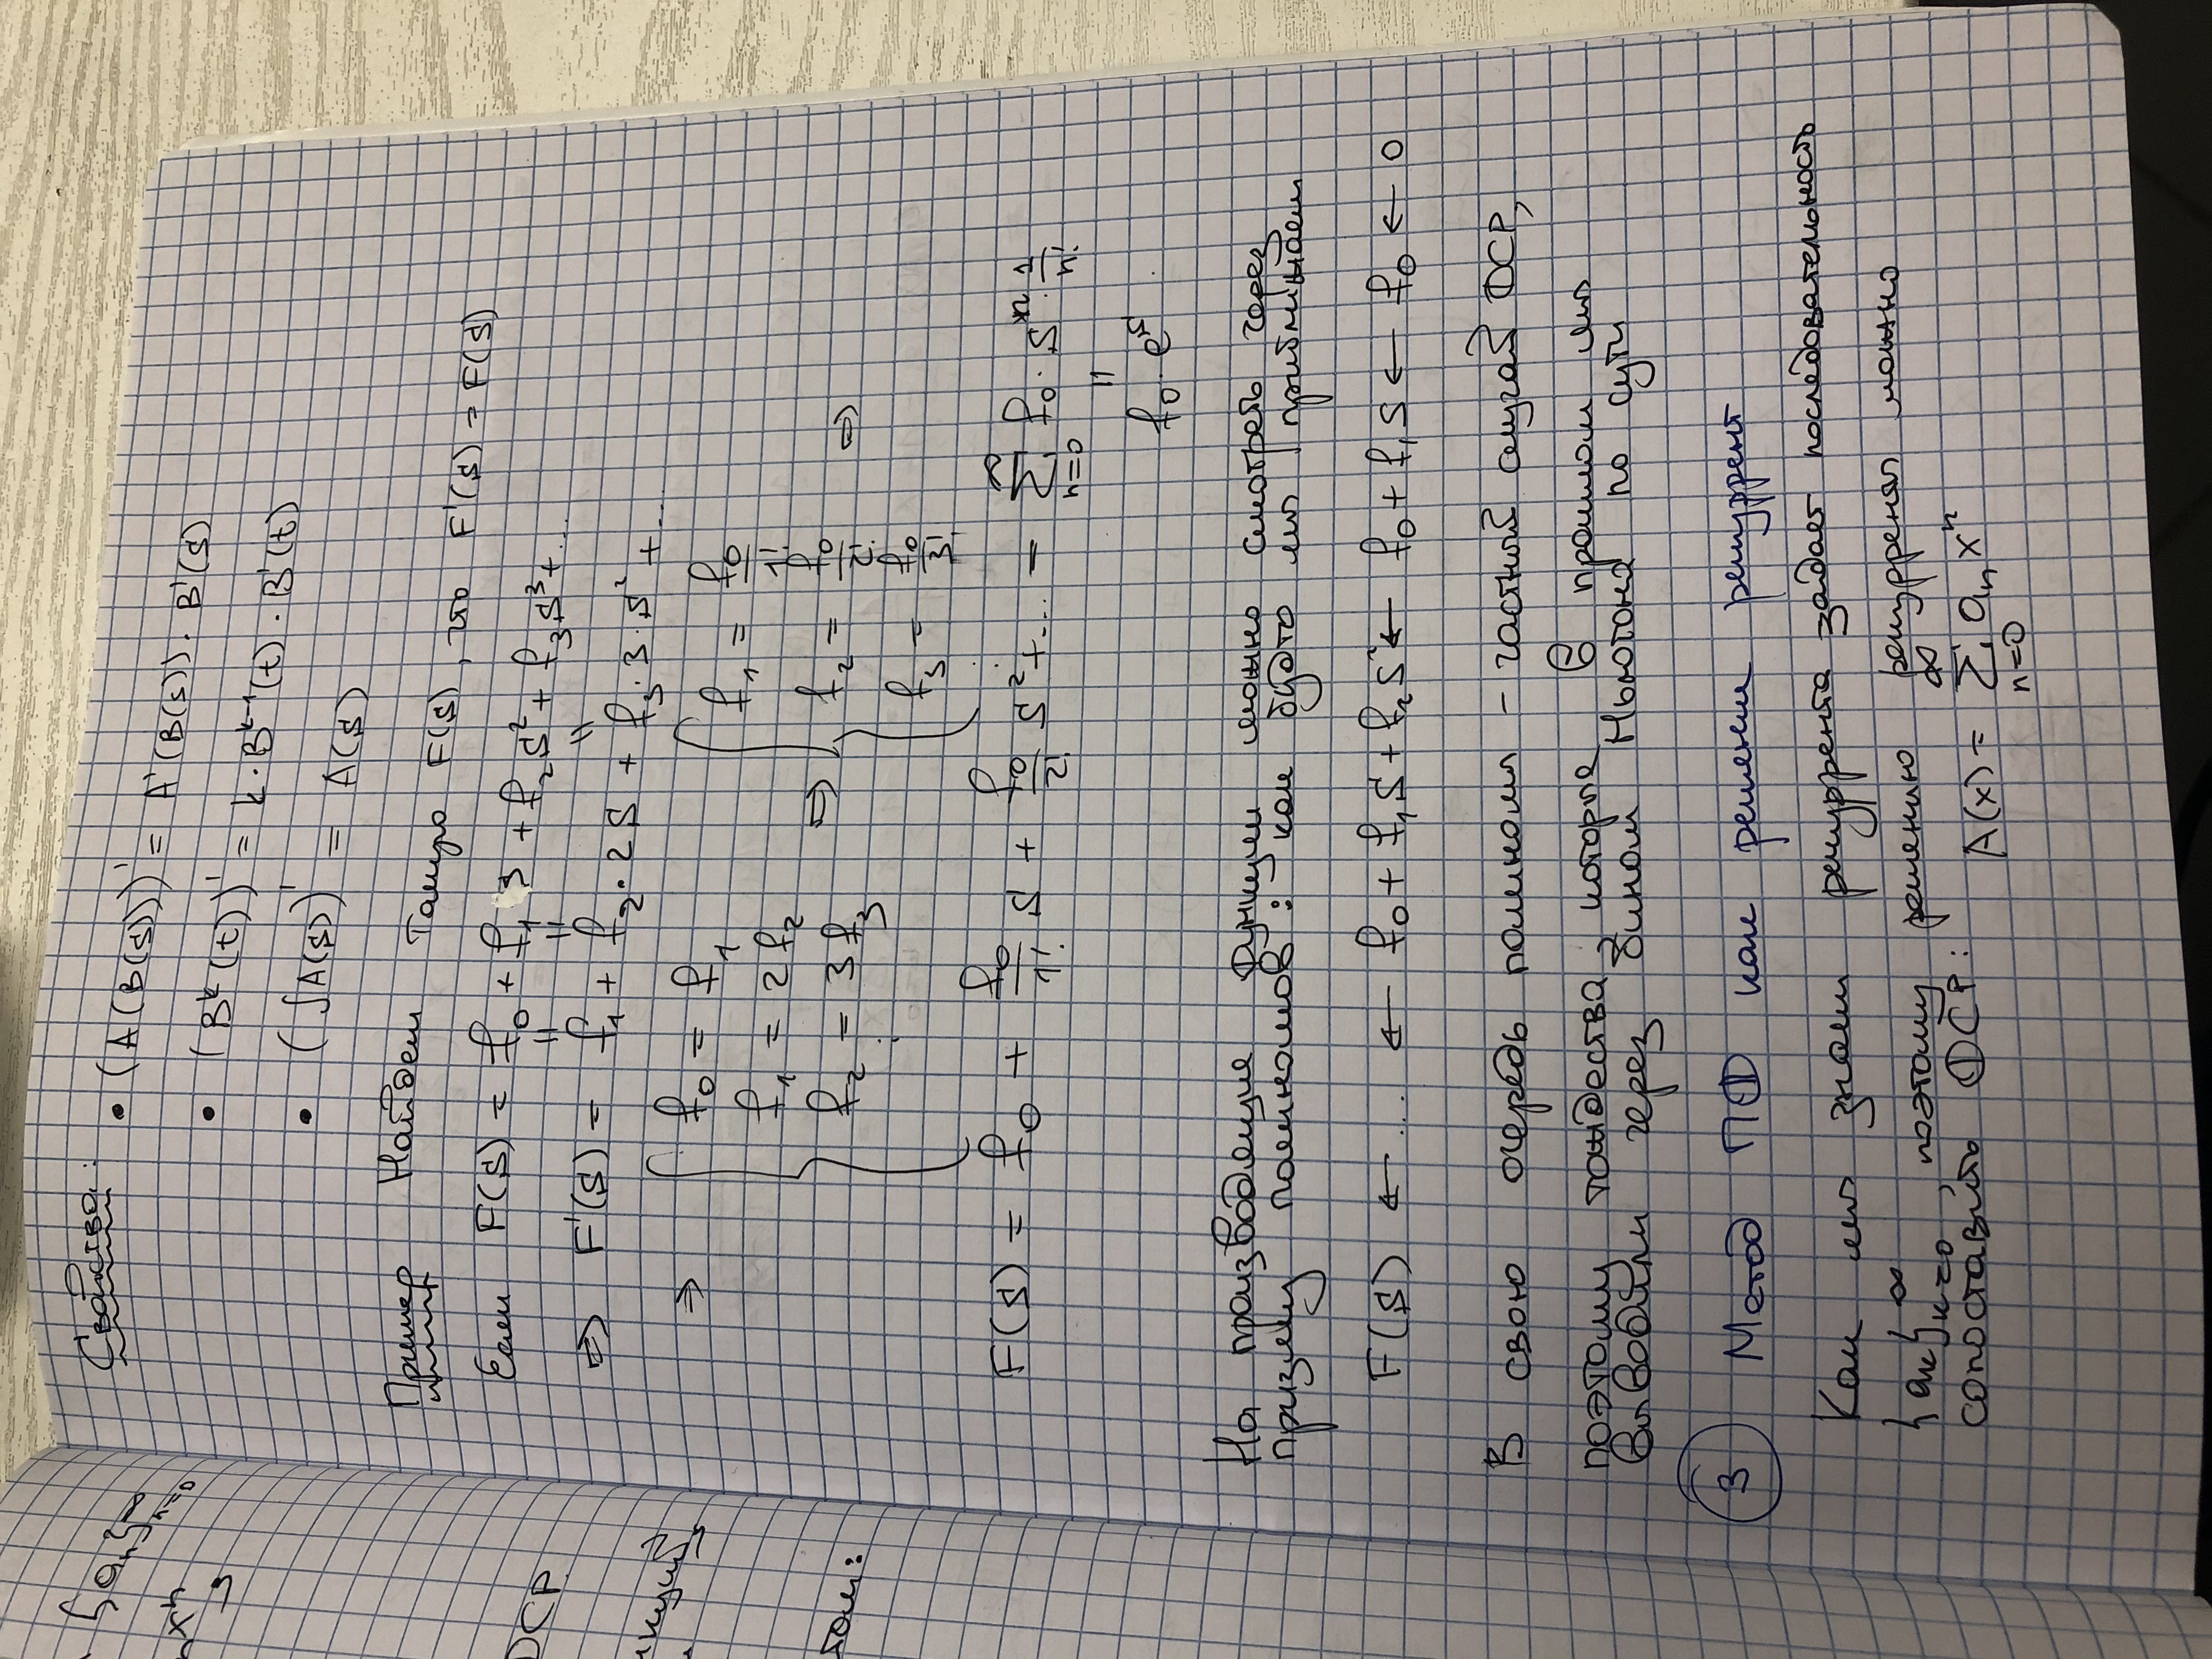 {aₙ}ₙ₌₀^∞
xⁿ
Свойства:
• (A(B(s)))' = A'(B(s)) · B'(s)
• (Bᵏ(t))' = k · Bᵏ⁻¹(t) · B'(t)
• (∫A(s))' = A(s)
Пример Найдем такую F(s), что F'(s) = F(s)
Если F(s) = f₀ + f₁ s + f₂s² + f₃s³ + ...
ФСР.
|| || ||
⇒ F'(s) = f₁ + f₂ · 2s + f₃ · 3 · s² + ...
⇒ { f₀ = f₁
f₁ = 2f₂
f₂ = 3f₃
⋮
⇒ { f₁ = f₀/1!
f₂ = f₀/2! ⇒
f₃ = f₀/3!
⋮
F(s) = f₀ + f₀/1! s + f₀/2! s² + ... = ∑ₙ₌₀^∞ f₀ · sⁿ · 1/n!
||
f₀ · eˢ
На производящие функции можно смотреть через
призму полиномов: как будто мы приближаем
F(s) ← ... ← f₀ + f₁s + f₂s² ← f₀ + f₁s ← f₀ ← 0
В свою очередь полиномы – частный случай ФСР,
поэтому тождества, которые в прошлом мы
выводили через бином Ньютона по сути
3 Метод ПФ как решение рекуррент
Как мы знаем рекуррента задает последовательность
{aₖ}ₖ₌₀^∞, поэтому решению рекурренты можно
сопоставить ФСР: A(x) = ∑ₙ₌₀^∞ aₙxⁿ